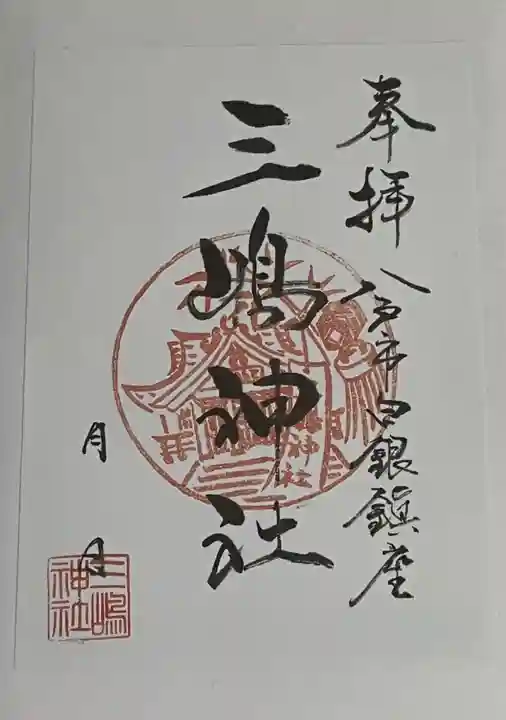 奉拝 八戸市白銀鎮座
三嶋神社
月 日
三嶋
神社